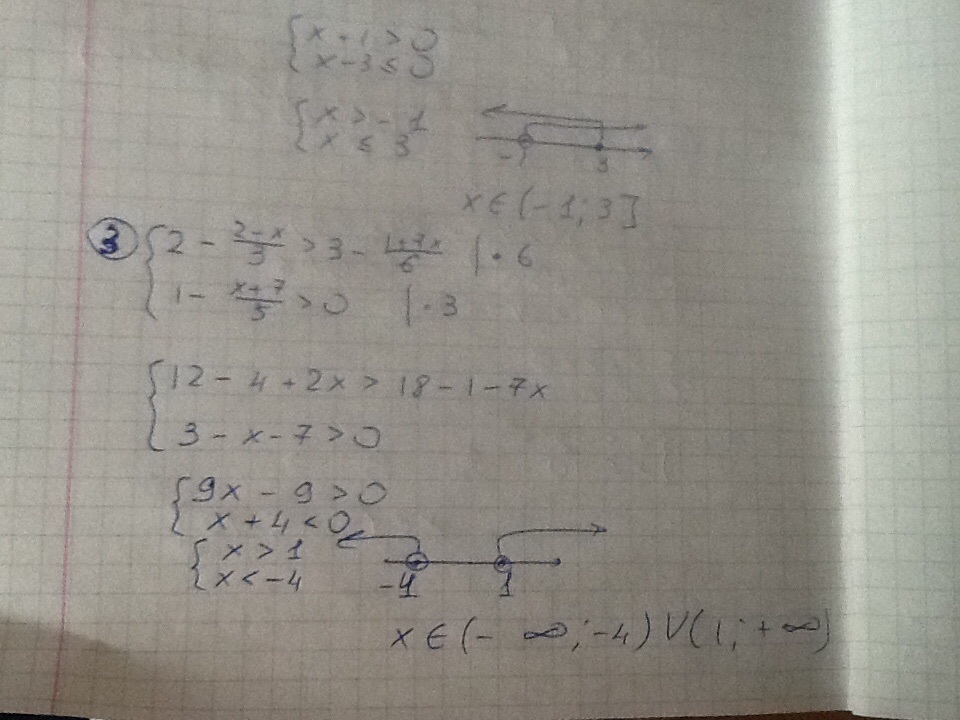 { x + 1 > 0
x - 3 ≤ 0
{ x > - 1
x ≤ 3
-1 3
x ∈ (- 1; 3]
③ { 2 - \frac{2-x}{3} > 3 - \frac{1+7x}{6} | · 6
1 - \frac{x+7}{5} > 0 | · 3
{ 12 - 4 + 2x > 18 - 1 - 7x
3 - x - 7 > 0
{ 9x - 9 > 0
x + 4 < 0
{ x > 1
x < -4
-4 1
x ∈ (- ∞; -4) ∨ (1; +∞)